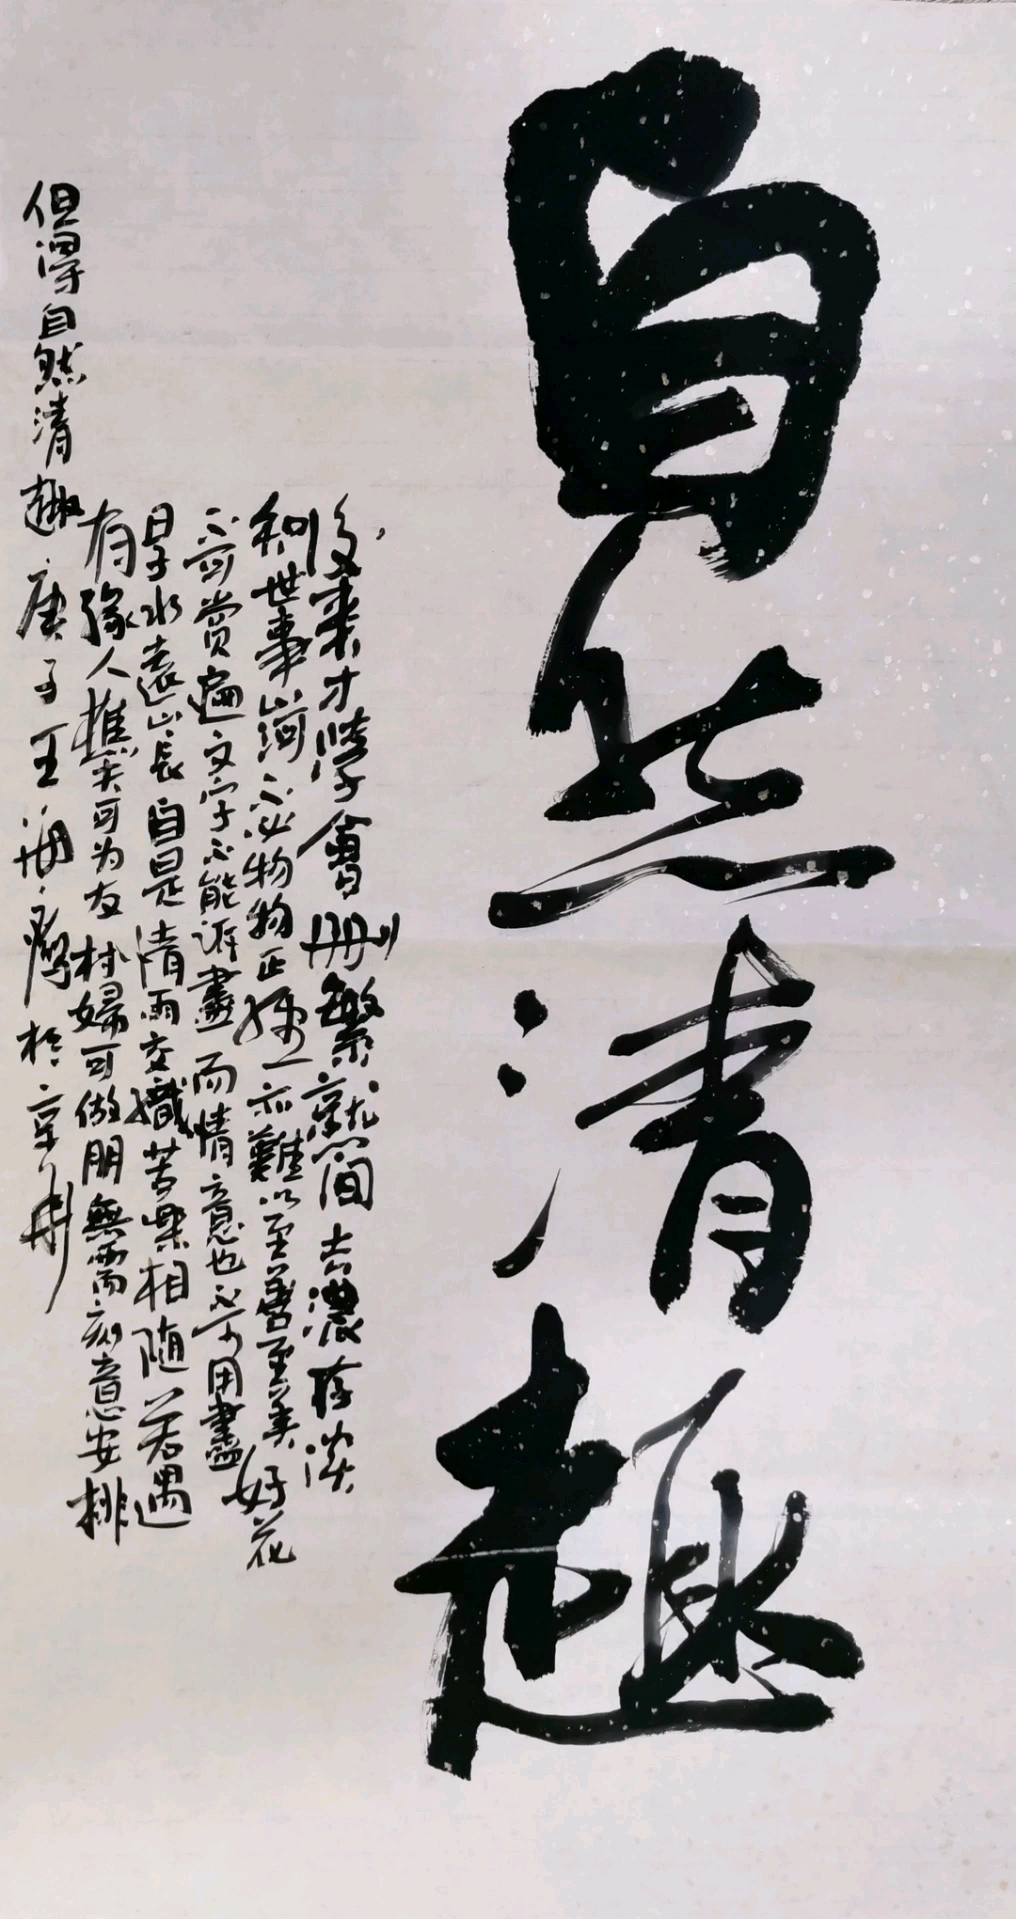 自然清趣
後来才學會刪繁就简去濃存淡
知世事山河不必物物正極一亦難以至善至美好花
不可賞遍文字不能訴盡而情意也不可用盡
是水遠山長自是清雨交織苦樂相随若遇
有緣人樵夫可为友村婦可做朋無需刻意安排
但得自然清趣庚子王海於京華